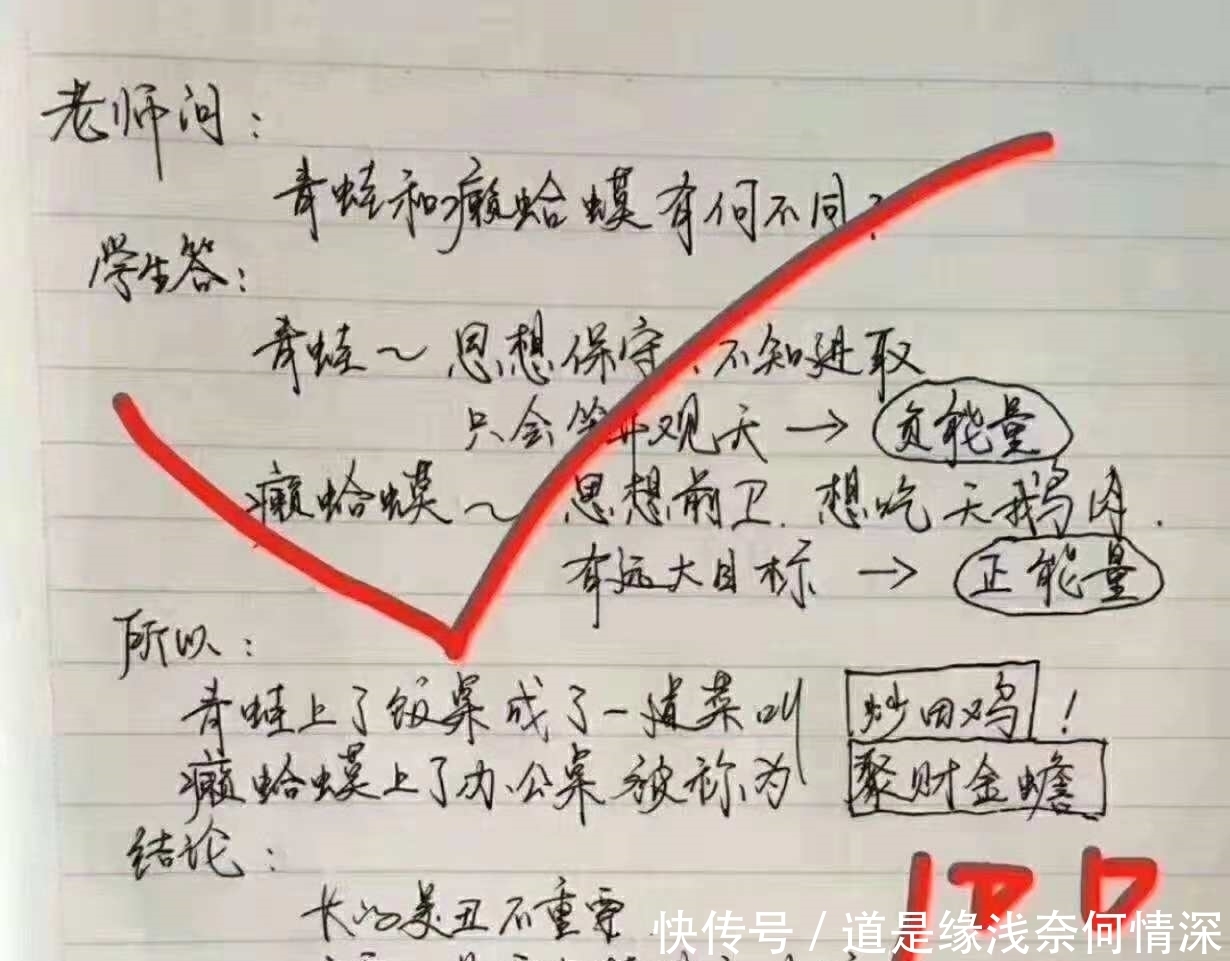 老师问：
青蛙和癞蛤蟆有何不同？
学生答：
青蛙～思想保守、不知进取
只会坐井观天→负能量
癞蛤蟆～思想前卫.想吃天鹅肉.
有远大目标→正能量
所以：
青蛙上了饭桌成了一道菜叫炒田鸡！
癞蛤蟆上了办公桌被称为聚财金蟾
结论：
长的美丑不重要
快传号/道是缘浅奈何情深